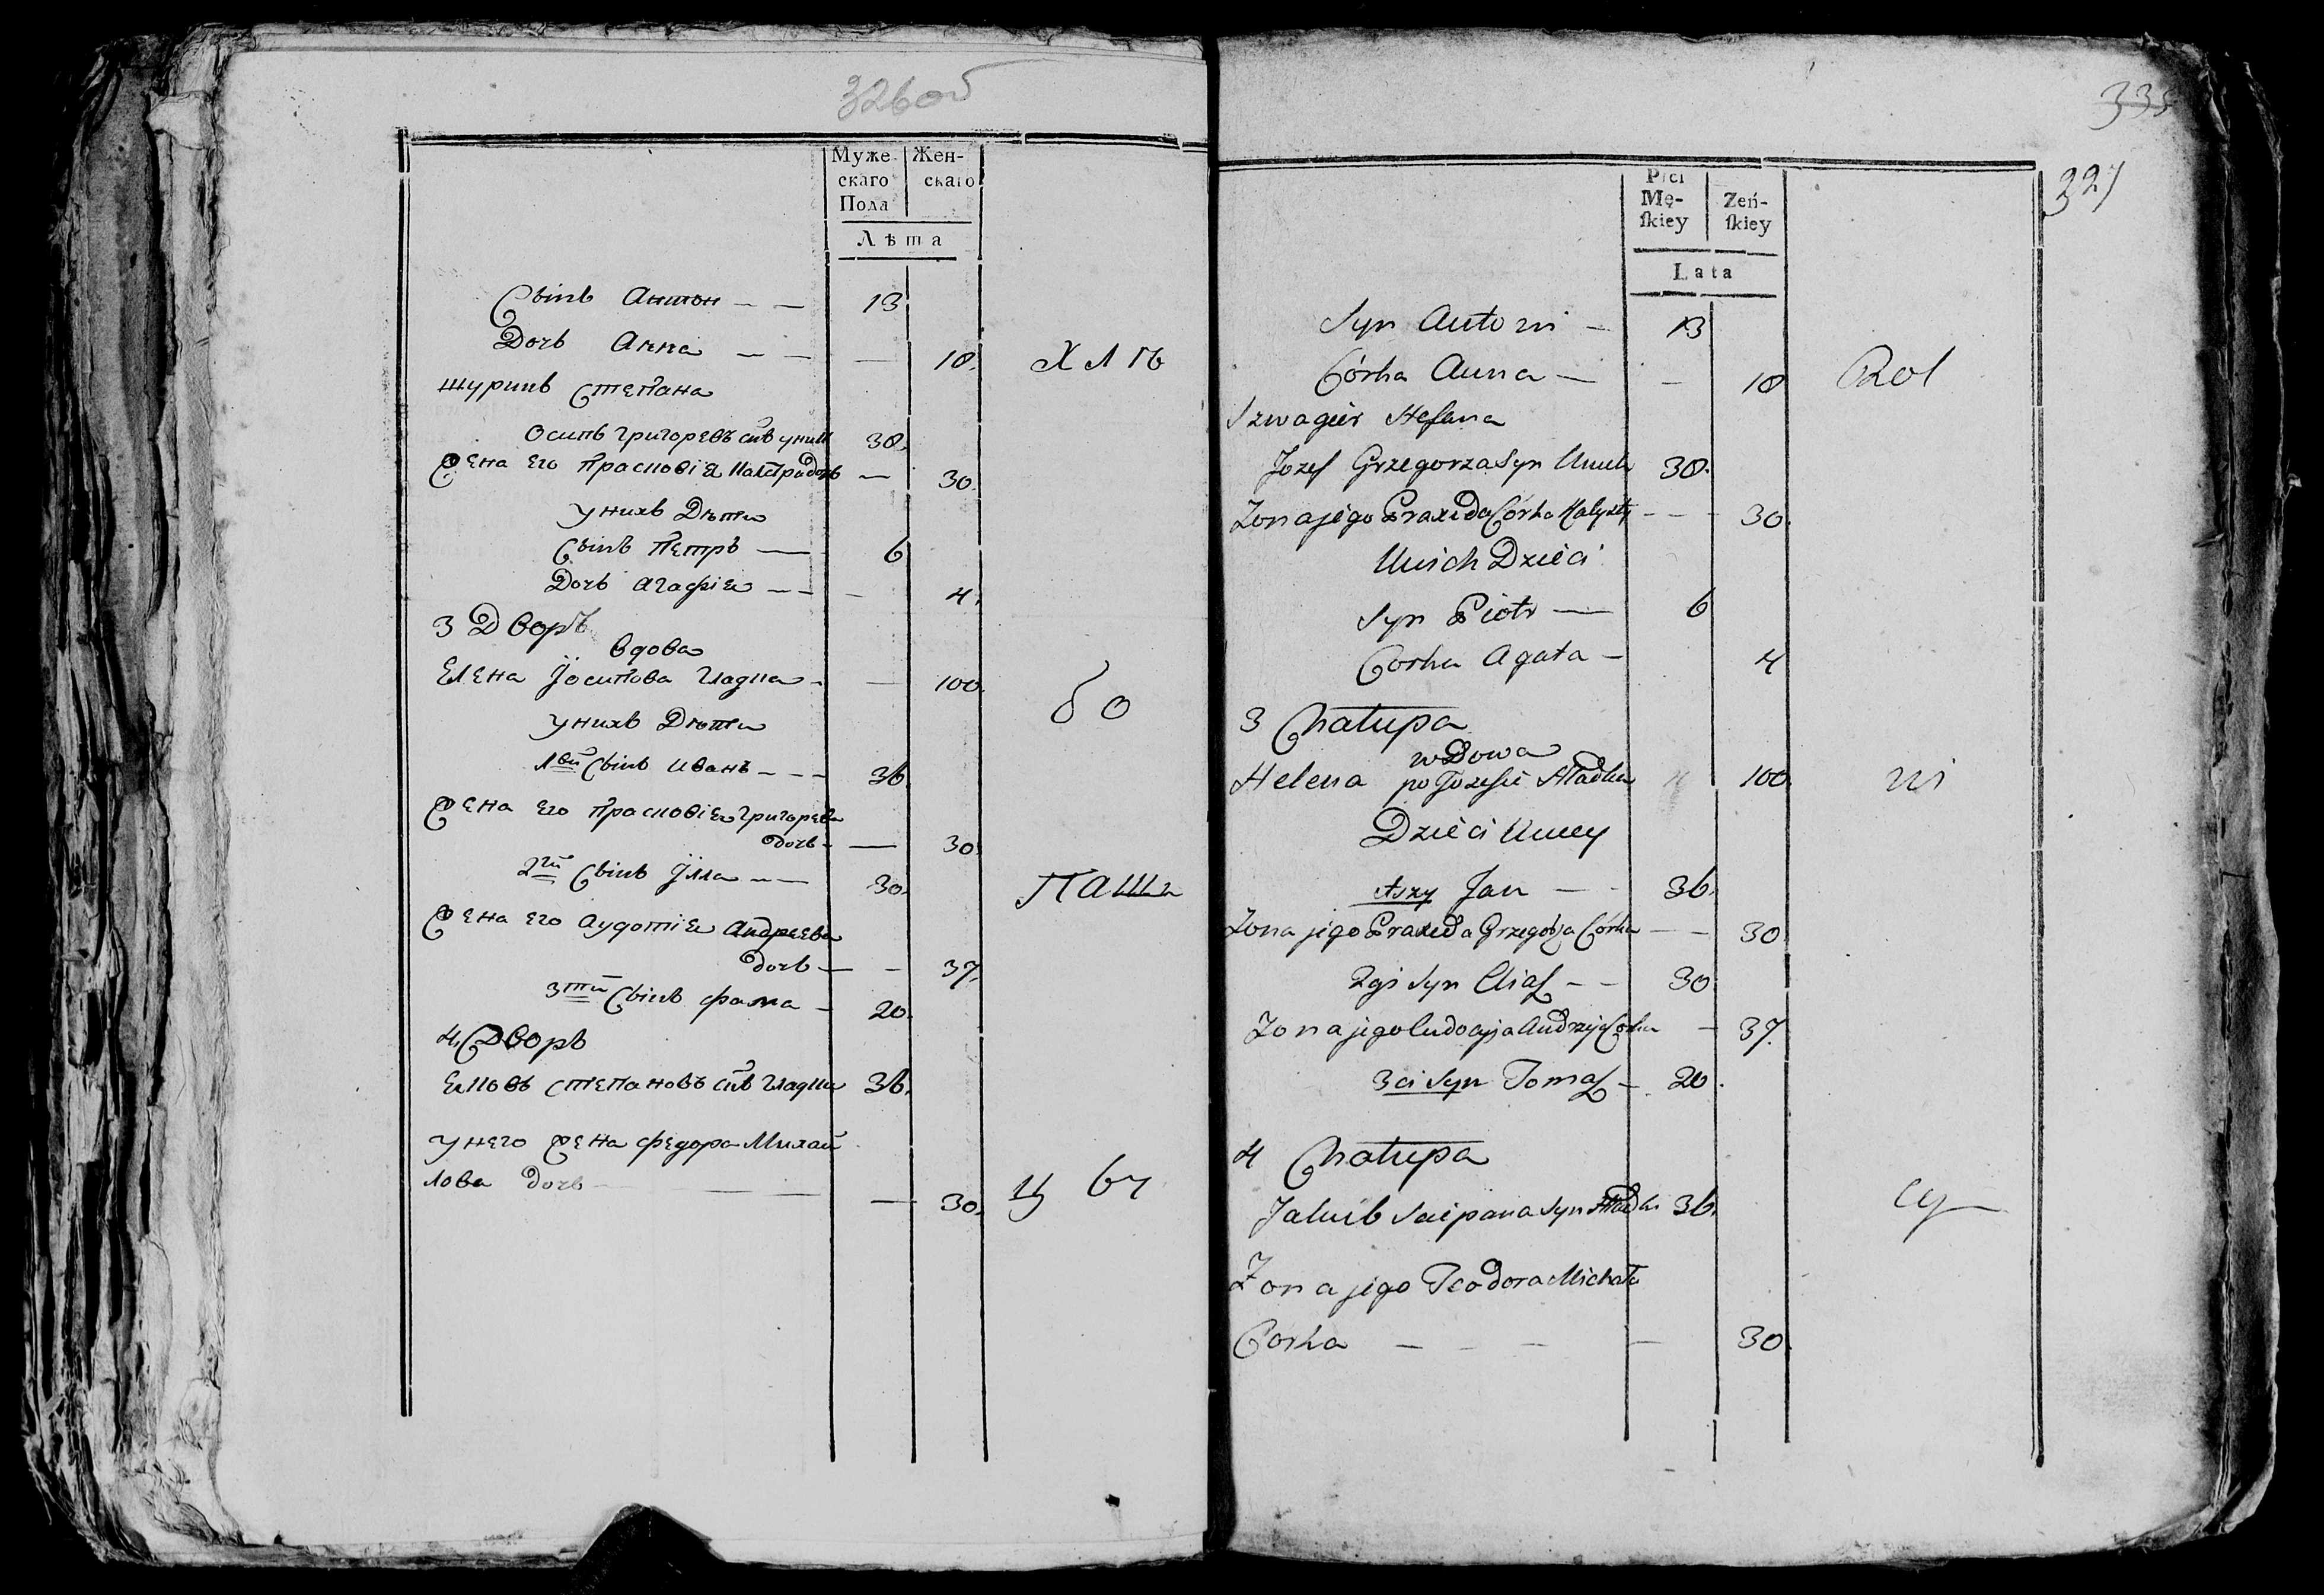 326об
Муже
скаго
Пола
Жен-
скаго
Лѣта
Сынъ Антон — — 13
Дочь Анна — — — 18.
ХЛѢ
шуринъ Степана
Осипъ Григоревъ снъ 38.
Жена его Прасковія дочь — 30.
у нихъ Дѣти
Сынъ Петръ — 6
Дочь Агафія — — — 4.
3 Дворъ
вдова
Елена Іосипова Гладка - — 100.
бо
у нихъ Дѣти
1вй Сынъ Иванъ - - - 36.
Жена его Прасковія Григорева
дочь - — 30.
2гй Сынъ Ілла — — 30.
ПАШ
Жена его Аудотія Андреева
дочь — - 37.
3тй Сынъ Фама - 20.
4. Дворъ
Яковъ Степановъ снъ 36.
у него Жена Федора Михай
лова дочь — — — — 30.
Ц
335
327
Płci
Mę-
ſkiey
Zeń-
ſkiey
Lata
Syn Antoni — 13
Córka Anna — — 18
Rol
Szwagier Stefana
Jozef Grzegorza Syn 38.
Zona jego Praxeda Córka - - - 30.
U nich Dzieci
Syn Piotr — 6
Corka Agata — 4
3 Chałupa
wDowa
Helena po Jozefie 100.
ni
Dzieci U niey
Jan — - 36.
Zona jego Praxeda Grzegorza Córka — - 30
2gi Syn Eliaſz - - 30.
Zona jego Eudocyja Andrzeja Corka - 37.
3ci Syn Tomaſz - 20.
4 Chałupa
Jakub Scipana Syn 36.
cy
Zona jego Teodora Michała
Corka — - — — 30.